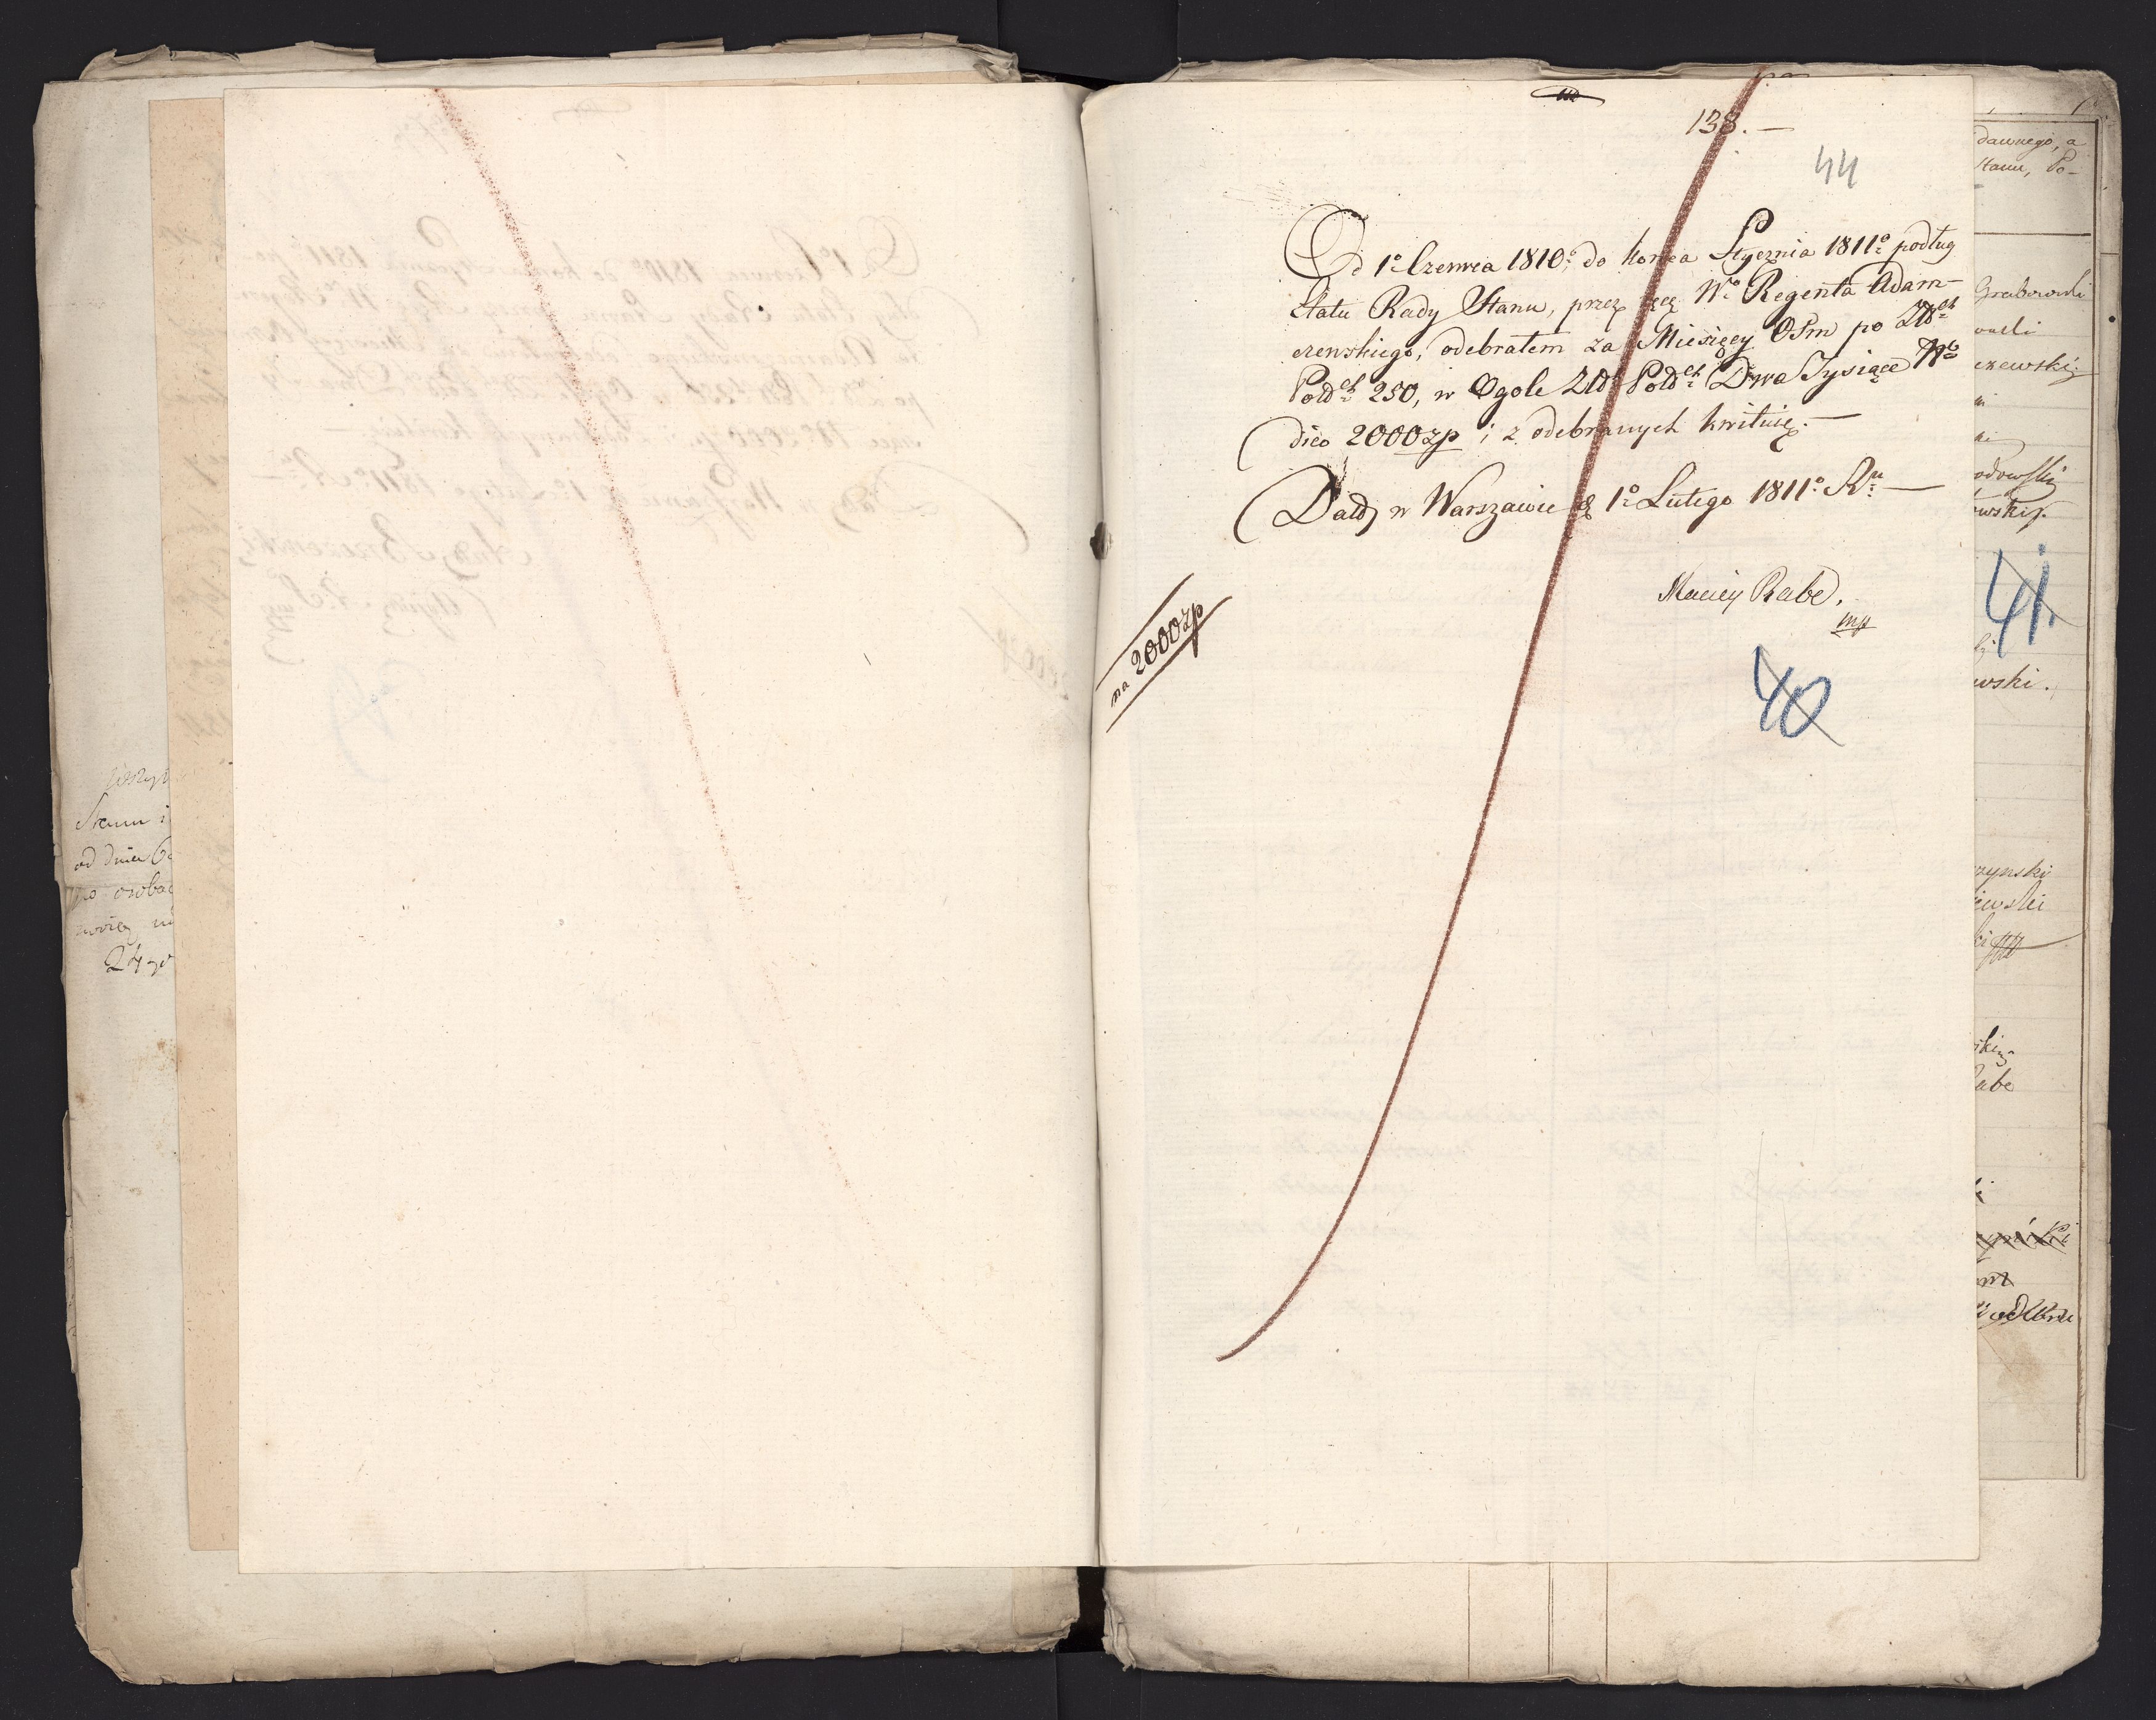 138.—
44
Od 1º Czerwca 1810º do końca Stycznia 1811º podług
Etatu Rady Stanu, przez ręce Wº Regenta Adam-
czewskiego, odebrałem za Miesięcy Ośm po Złotch
Polch 250, w Ogole Złt Polch Dwa Tysiące Nº
dico 2000 zp i z odebranych kwituię.—
Dało w Warszawie d 1º Lutego 1811º Ru—
Maciey Rabe,
mp
na 2000 zp
40
dawnego, a
Stanu, Po-
Grabowski
owski
czewski
odowski
owski
41.
wski.
zynski
iewski
ki
ski
abe
Stanu i
od dnia 6
po osobac
24go